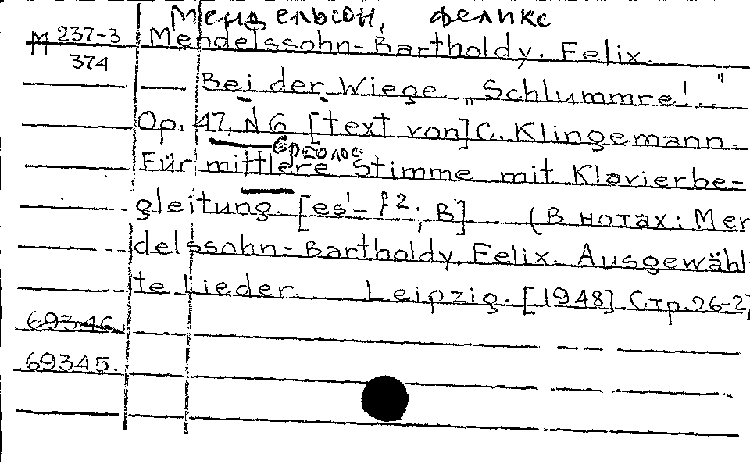 Мендельсон, Феликс
М 237-3 Mendelssohn-Bartholdy. Felix.
374
Bei der Wiege „Schlummre!.."
Op. 47, N 6 [text von] C. Klingemann.
средне
Für mittlere Stimme mit Klavierbe-
gleitung [es'- f²; B] (В нотах: Men
delssohn-Bartholdy, Felix. Ausgewähl
te Lieder. Leipzig. [1948] Стр. 26-27
69346
69345.